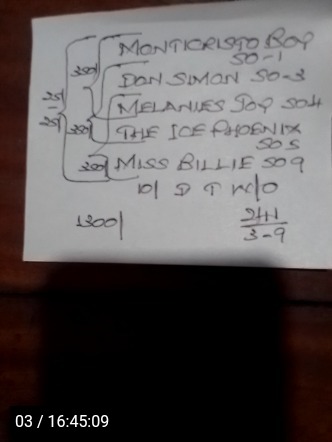 MONTICRISTO BOY
SO-1
350/ DON SIMON SO-3
MELANIES JOY SO4
350/ THE ICE PHOENIX
SO5
350/ MISS BILLIE SO9
10/ D T W/O
1300/
3-9
03 / 16:45:09